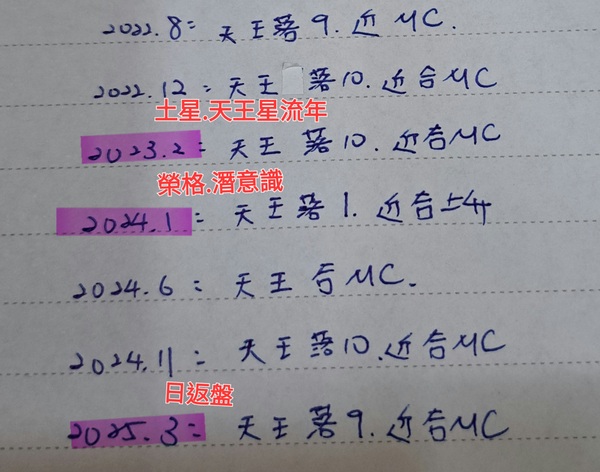 2022.8= 天王落9.近MC.
2022.12=天王 落10.近合MC
土星.天王星流年
2023.2= 天王落10.近合MC
榮格.潛意識
2024.1= 天王落1.近合上升
2024.6= 天王合MC.
2024.11= 天王落10.近合MC
日返盤
2025.3= 天王落9.近合MC